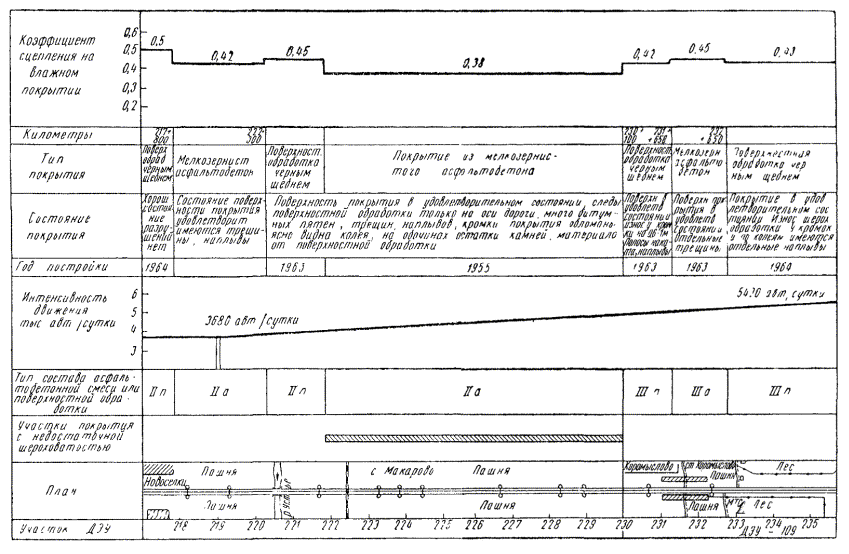 Коэффициент
сцепления на
влажном
покрытии
0,6
0,5
0,4
0,3
0,2
0,5
0,42
0,45
0,38
0,42
0,45
0,43
Километры
217+
800
Тип
покрытия
Поверх
обрад
черным
щебнем
Мелкозернист
асфальтодетон
Поверхност.
обработка
черным
щебнем
Покрытие из мелкозернис-
того асфальтобетона
Поверхност.
обработка
черным
щебнем
Мелкозерн
асфальто-
бетон
Поверхностная
обработка чер
ным щебнем
Состояние
покрытия
Хорош
состоя-
ние
разру-
шений
нет
Состояние поверх-
ности покрытия
удовлетворит
имеются трещи-
ны, наплывы
Поверхность покрытия в удовлетворительном состоянии, следы
поверхностной обработки только на оси дороги, много битум-
ных пятен, трещин, наплывов, кромки покрытия обломаны
ясно видна колея, на обочинах остатки камней, материала
от поверхностной обработки
Поверхн в
удовлетв
состоянии
износ у кром
Поверх пок
рытия в
удовлетв
состоянии
отдельные
трещины.
Покрытие в удов
летворительном сос
тоянии Износ шерох
обработки у кромок
и на колеях имеются
отдельные наплывы
Год постройки
1964
1963
1955
1963
1963
1964
Интенсивность
движения
тыс авт/сутки
6
5
4
3
3680 авт/сутки
5430 авт, сутки
Тип состава асфаль-
тобетонной смеси или
поверхностной обра-
ботки
II п
II а
II п
II а
III п
III а
III п
Участки покрытия
с недостаточной
шероховатостью
План
Новоселки
Пашня
Пашня
с Макарово
Пашня
Пашня
Хоромыслово
ст Хоромыслово
Пашня
Пашня
Лес
Лес
Участок ДЭУ
218
219
220
221
222
223
224
225
226
227
228
229
230
231
232
233
234
235
ДЭУ - 109